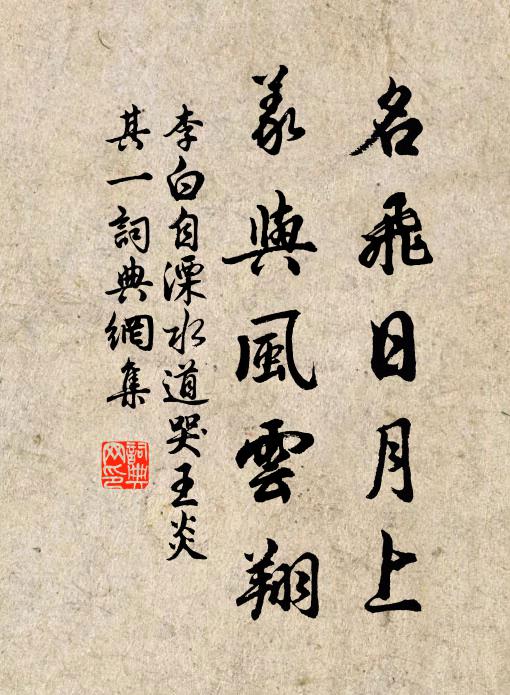 名飛日月上
義與風雲翔
李白自溧水道哭王炎
其一詞典網集
詞典網印